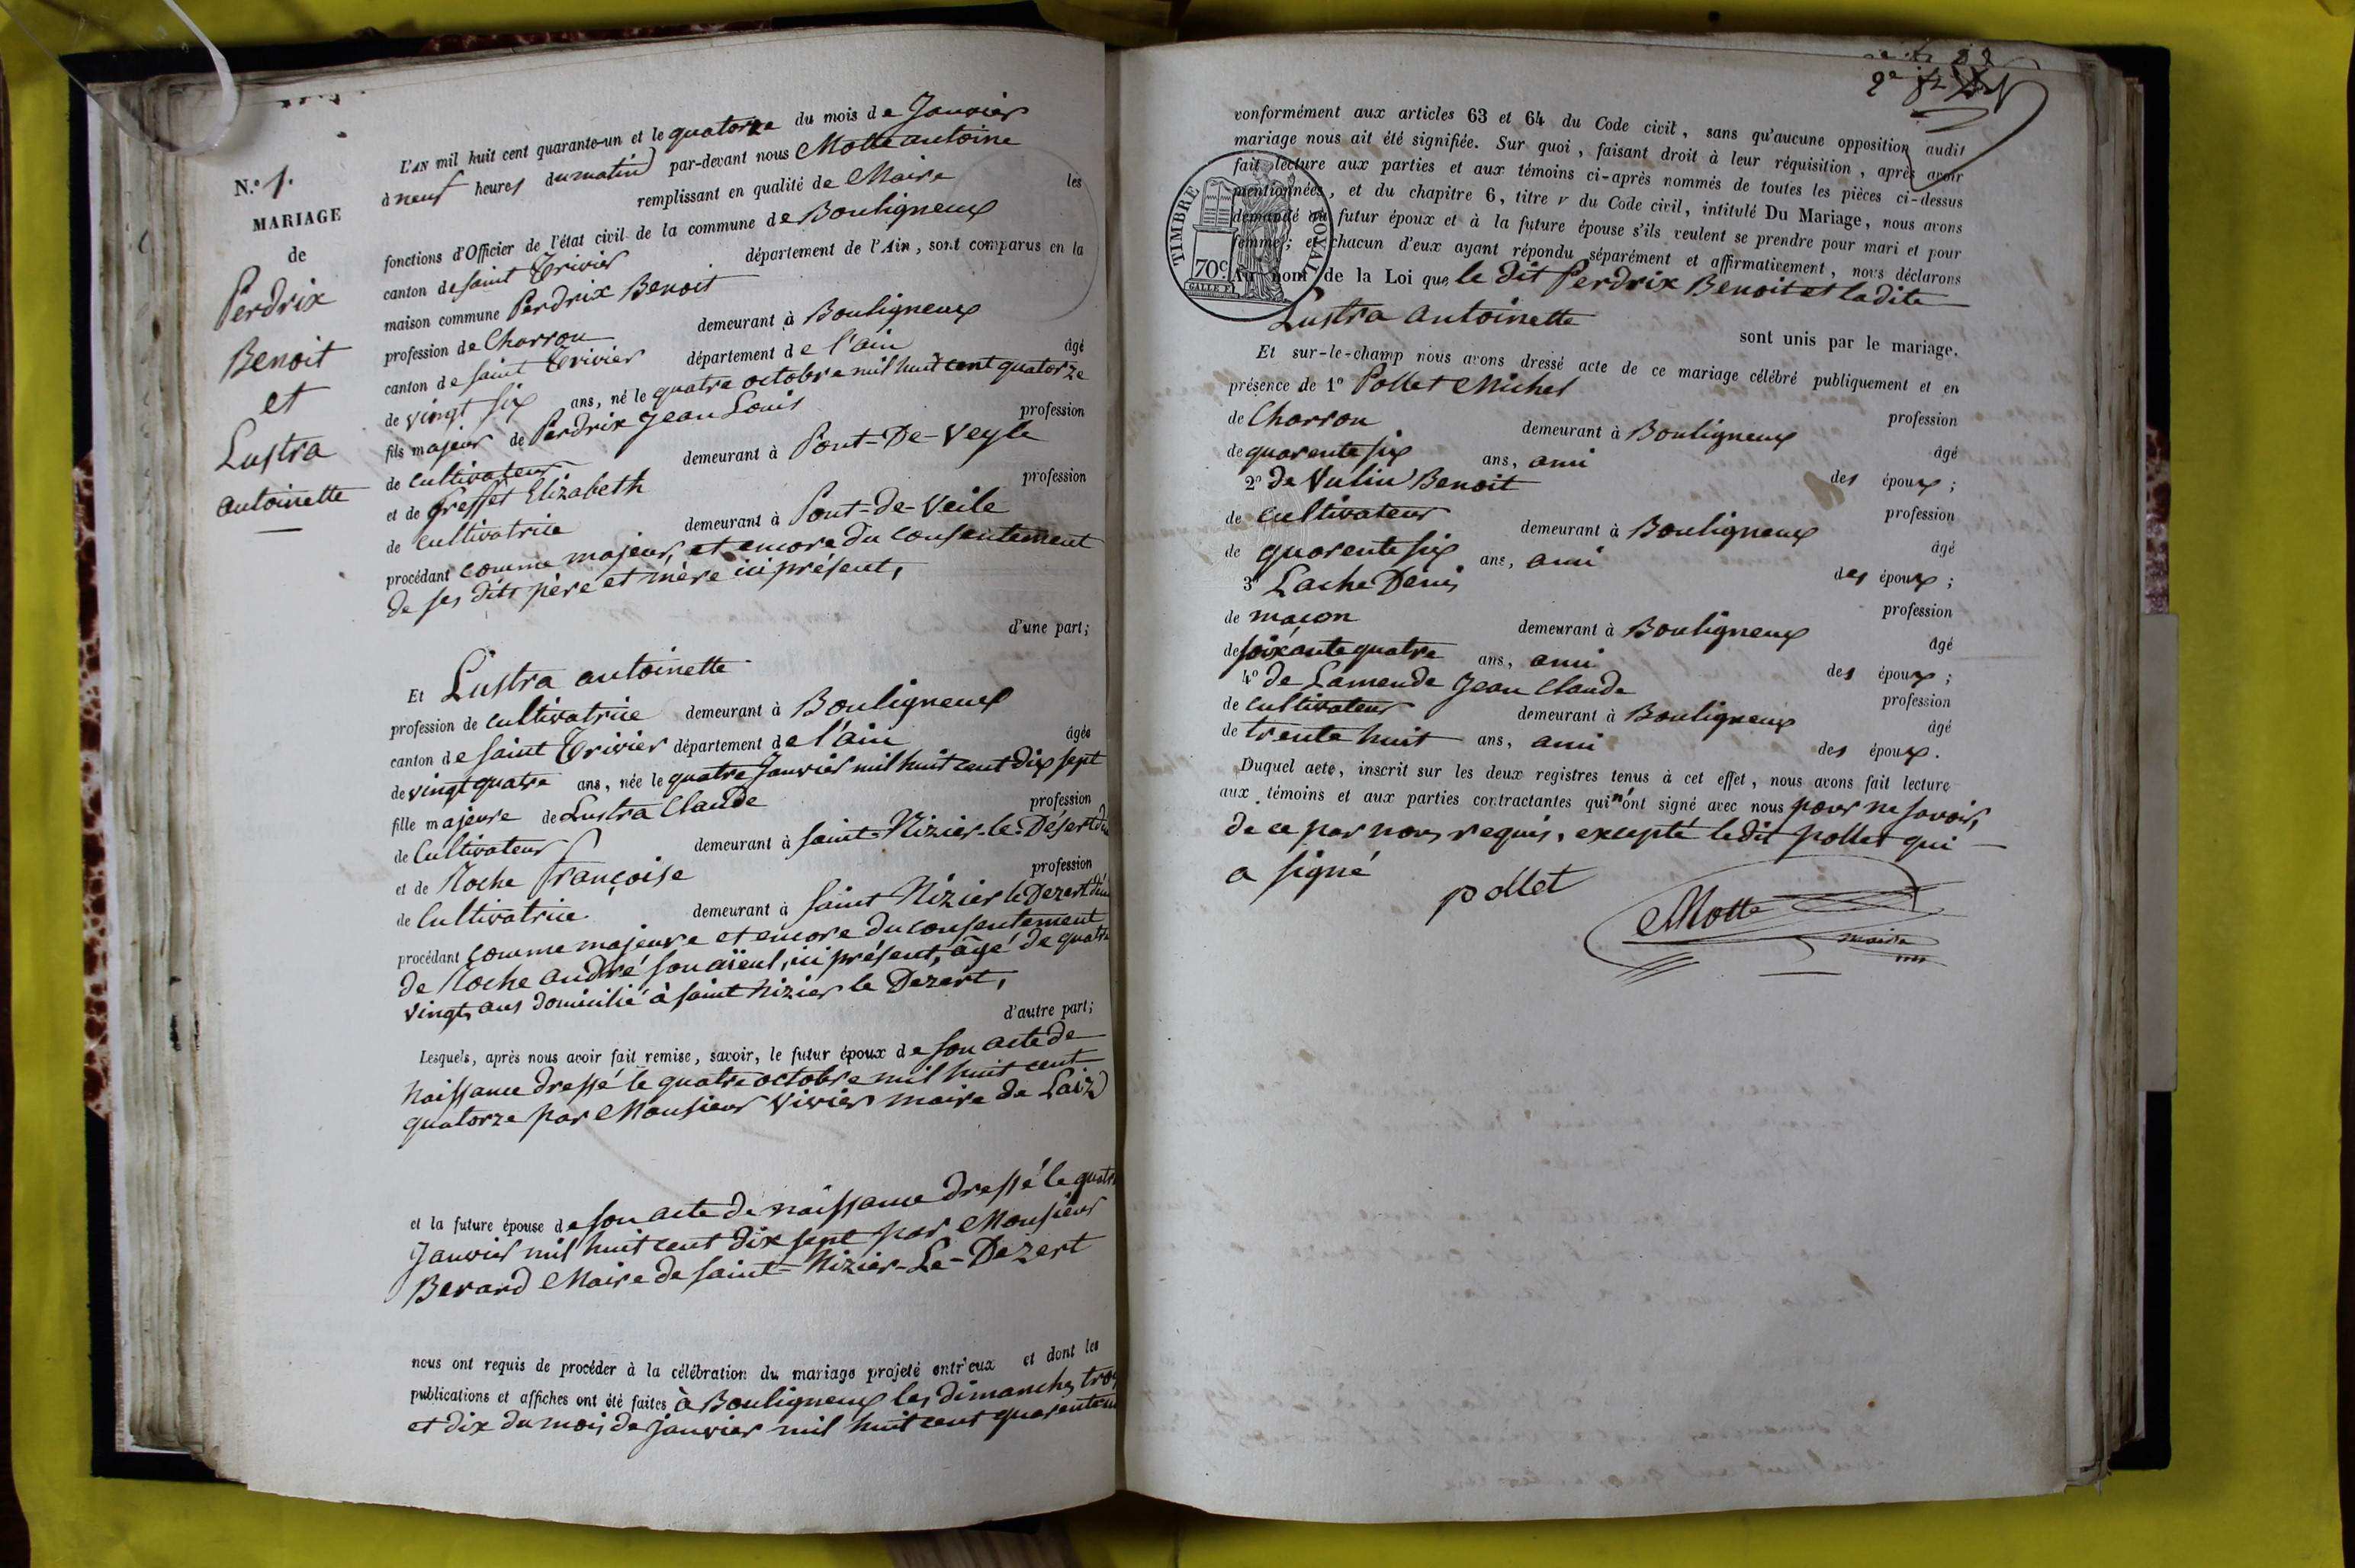 N.o 1.
MARIAGE
de
Perdrix
Benoit
et
Lustra
antoinette
L'AN mil huit cent quarante-un et le quatorze du mois de Janvier
à neuf heures du matin par-devant nous Motte antoine
remplissant en qualité de Maire les
fonctions d'Officier de l'état civil de la commune de Bouligneux
canton de saint Trivier département de l'Ain, sont comparus en la
maison commune Perdrix Benoit
profession de Charron demeurant à Bouligneux
canton de saint Trivier département de l'ain âgé
de vingt six ans, né le quatre octobre mil huit cent quatorze
fils majeur de Perdrix Jean Louis profession
de cultivateur demeurant à Pont-De-Veyle
et de Greffet Elizabeth profession
de cultivatrice demeurant à Pont-de-Veile
procédant comme majeur, et encore du consentement
de ses dits père et mère ici présent,
d'une part;
Et Lustra antoinette
profession de cultivatrice demeurant à Bouligneux
canton de saint Trivier département de l'ain âgée
de vingt quatre ans, née le quatre Janvier mil huit cent dix sept
fille majeure de Lustra Claude profession
de Cultivateur demeurant à saint-Nizier-le-Désert
et de Roche françoise profession
de Cultivatrice demeurant à saint Nizier le Dezert
procédant comme majeure et encore du consentement
de Roche andré son aïeul, ici présent, âgé de quatre
vingts ans domicilié à saint Nizier le Dezert,
d'autre part;
Lesquels, après nous avoir fait remise, savoir, le futur époux de son acte de
naissance dressé le quatre octobre mil huit cent
quatorze par Monsieur Vivier maire de Laiz
et la future épouse de son acte de naissance dressé le quatre
Janvier mil huit cent dix sept par Monsieur
Berard Maire de saint-Nizier-Le-Dezert
nous ont requis de procéder à la célébration du mariage projeté entr'eux et dont les
publications et affiches ont été faites à Bouligneux les dimanches trois
et dix du mois de janvier mil huit cent quarante un
conformément aux articles 63 et 64 du Code civil, sans qu'aucune opposition audit
mariage nous ait été signifiée. Sur quoi, faisant droit à leur réquisition, après avoir
fait lecture aux parties et aux témoins ci-après nommés de toutes les pièces ci-dessus
mentionnées, et du chapitre 6, titre v du Code civil, intitulé Du Mariage, nous avons
demandé au futur époux et à la future épouse s'ils veulent se prendre pour mari et pour
femme; et chacun d'eux ayant répondu séparément et affirmativement, nous déclarons
Au nom de la Loi que le dit Perdrix Benoit et la dite
Lustra antoinette
sont unis par le mariage.
TIMBRE ROYAL
70c
Et sur-le-champ nous avons dressé acte de ce mariage célébré publiquement et en
présence de 1o Pollet Michel profession
de Charron demeurant à Bouligneux âgé
de quarente six ans, ami des époux;
2o de Vulin Benoit profession
de cultivateur demeurant à Bouligneux âgé
de quarente six ans, ami des époux;
3o Lache Denis profession
de maçon demeurant à Bouligneux âgé
de soixante quatre ans, ami des époux;
4o de Lamende Jean Claude profession
de cultivateur demeurant à Bouligneux âgé
de trente huit ans, ami des époux.
Duquel acte, inscrit sur les deux registres tenus à cet effet, nous avons fait lecture
aux témoins et aux parties contractantes qui n'ont signé avec nous pour ne savoir,
de ce par nous requis, excepté le dit pollet qui
a signé
pollet
Motte
maire